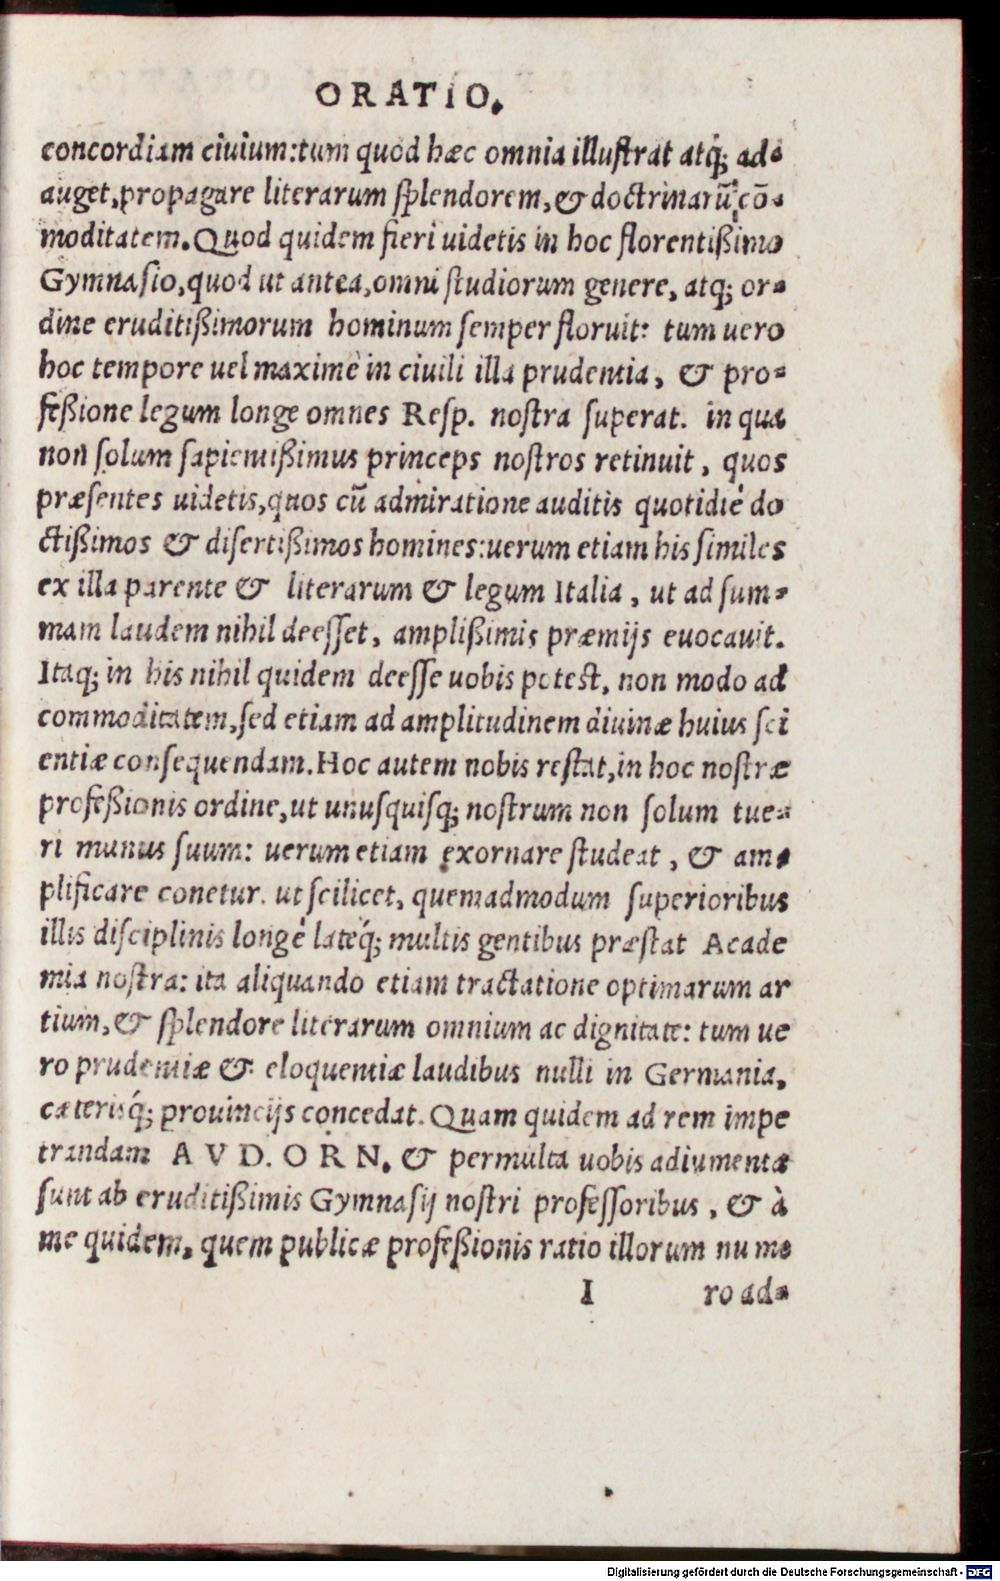 ORATIO.
concordiam ciuium: tum quod hæc omnia illuſtrat atq́; ad-
auget, propagare literarum ſplendorem, & doctrinarū, cō-
moditatem. Quod quidem fieri uidetis in hoc florentißimo
Gymnaſio, quod ut antea, omni ſtudiorum genere, atq; or-
dine eruditißimorum hominum ſemper floruit: tum uero
hoc tempore uel maximè in ciuili illa prudentia, & pro-
feßione legum longe omnes Reſp. noſtra ſuperat. in qua
non ſolum ſapientißimus princeps noſtros retinuit, quos
præſentes uidetis, quos cū admiratione auditis quotidiè do
ctißimos & diſertißimos homines: uerum etiam his ſimiles
ex illa parente & literarum & legum Italia, ut ad ſum-
mam laudem nihil deeſſet, amplißimis præmijs euocauit.
Itaq; in his nihil quidem deeſſe uobis poteſt, non modo ad
commoditatem, ſed etiam ad amplitudinem diuinæ huius ſci
entiæ conſequendam. Hoc autem nobis reſtat, in hoc noſtræ
profeßionis ordine, ut unuſquiſq; noſtrum non ſolum tue-
ri munus ſuum: uerum etiam exornare ſtudeat, & am-
plificare conetur. ut ſcilicet, quemadmodum ſuperioribus
illis diſciplinis longè lateq́; multis gentibus præſtat Acade
mia noſtra: ita aliquando etiam tractatione optimarum ar
tium, & ſplendore literarum omnium ac dignitate: tum ue
ro prudentiæ & eloquentiæ laudibus nulli in Germania,
cæterisq́; prouincijs concedat. Quam quidem ad rem impe
trandam AVD. ORN. & permulta uobis adiumenta
ſunt ab eruditißimis Gymnaſij noſtri profeſſoribus, & à
me quidem, quem publicæ profeßionis ratio illorum nume
I ro ad-
Digitalisierung gefördert durch die Deutsche Forschungsgemeinschaft - DFG